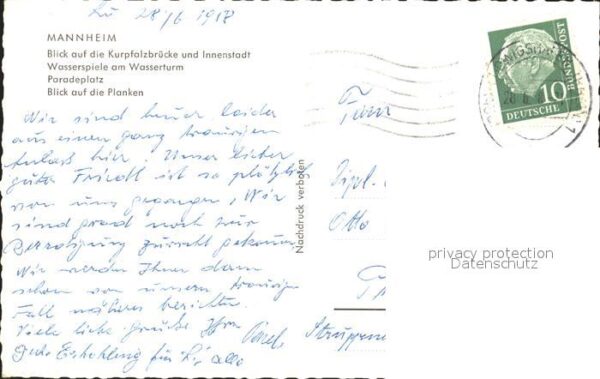 Lü 28/6 1958
MANNHEIM
Blick auf die Kurpfalzbrücke und Innenstadt
Wasserspiele am Wasserturm
Paradeplatz
Blick auf die Planken
Wir sind heuer leider
aus einem ganz traurigen
Anlaß hier. Unser lieber
guter Friedl ist so plötzlich
von uns gegangen, Wir
sind grad noch zur
Beerdigung zurecht gekommen
Wir werden Ihnen dann
schon von unserm traurigen
Fall näheres berichten.
Viele liebe Grüße Ihre
Gute Erholung für Sie alle
Nachdruck verboten
Fam
Dipl.
Otto
DEUTSCHE
BUNDESPOST
10
privacy protection
Datenschutz